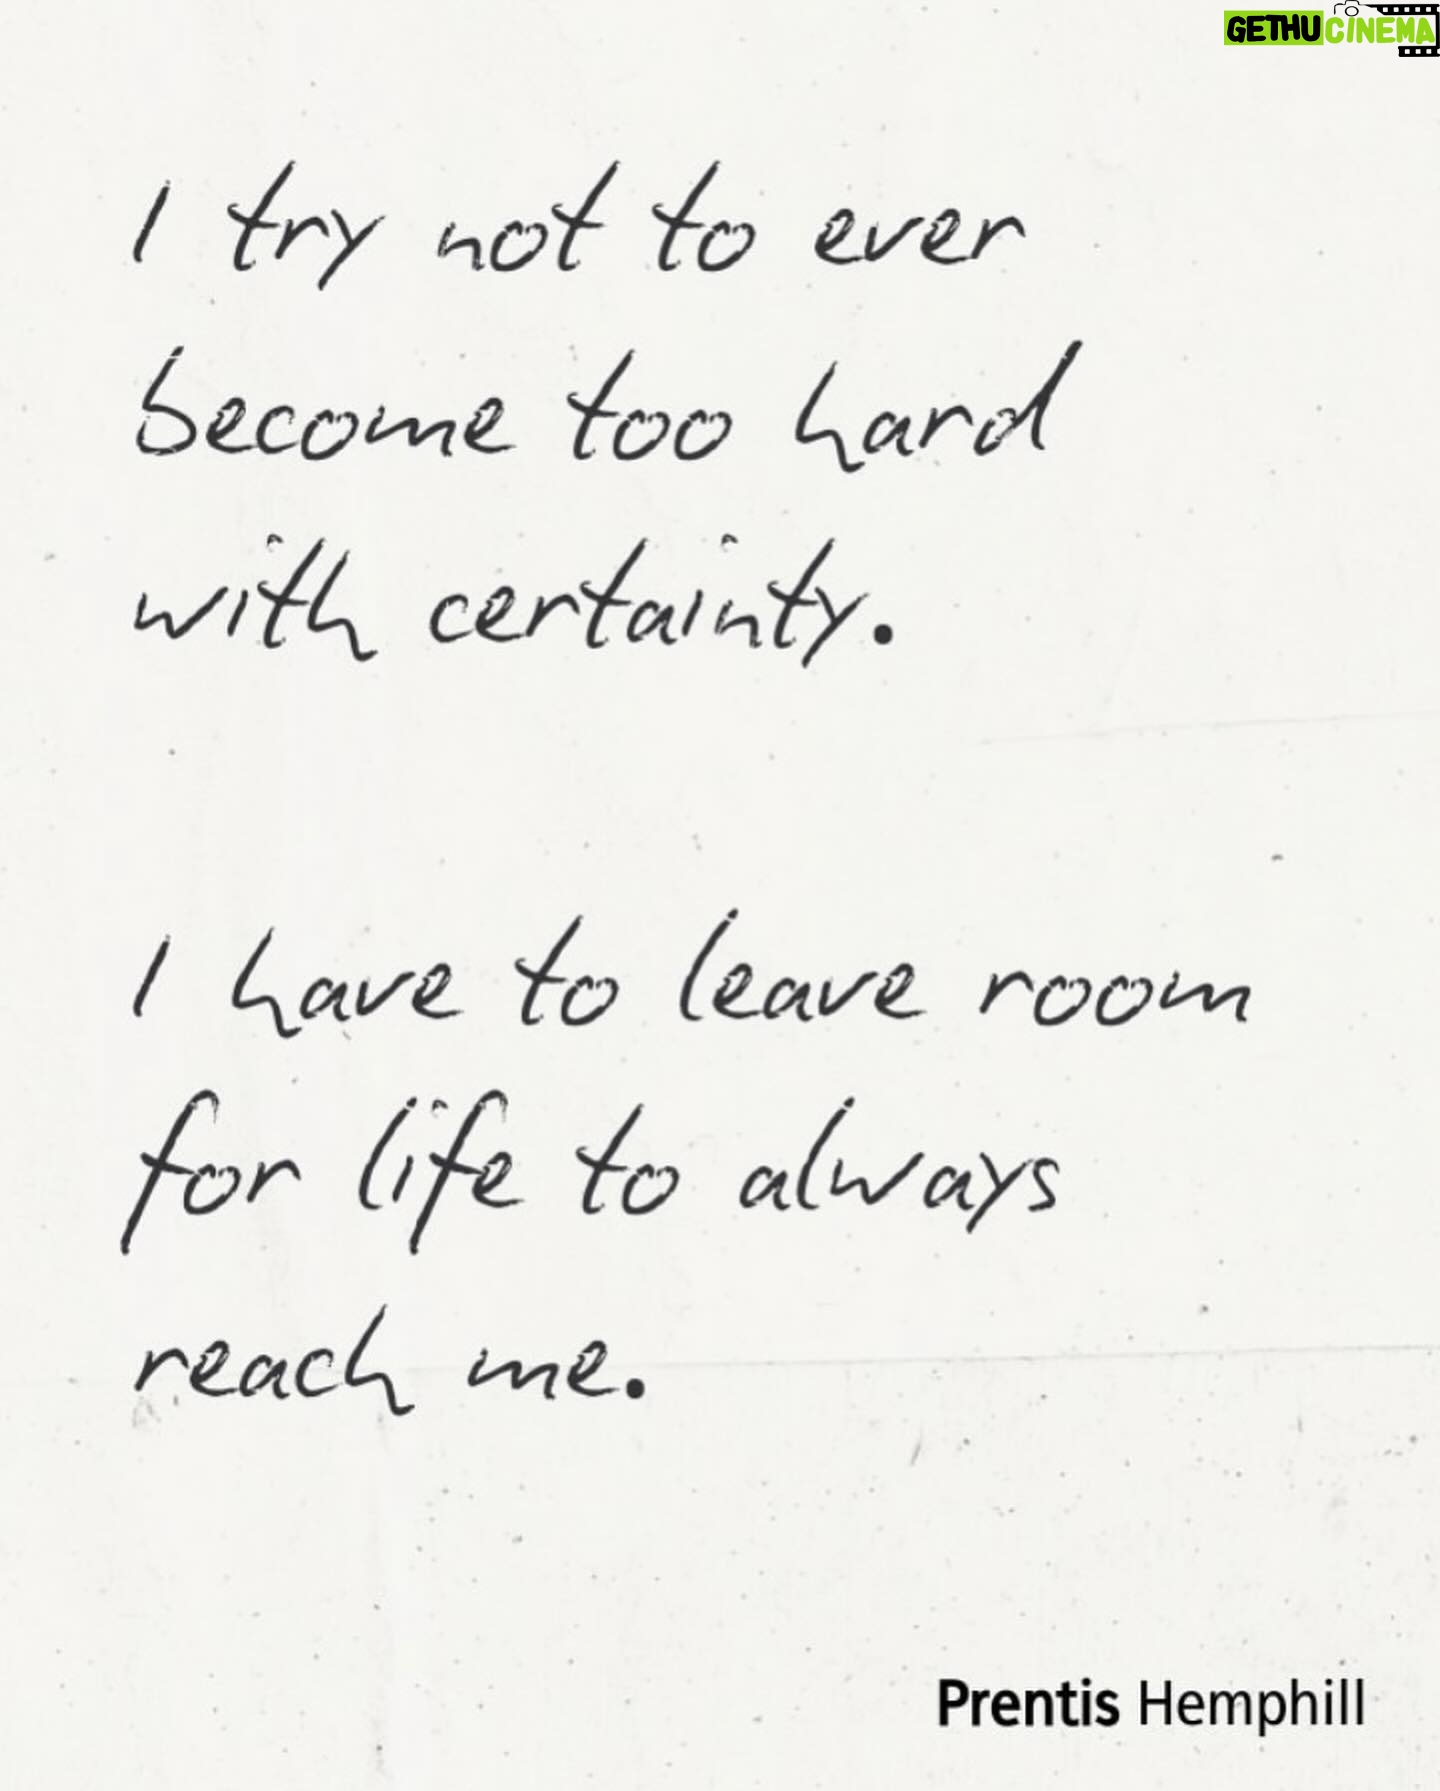 GETHUCINEMA
I try not to ever
become too hard
with certainty.
I have to leave room
for life to always
reach me.
Prentis Hemphill